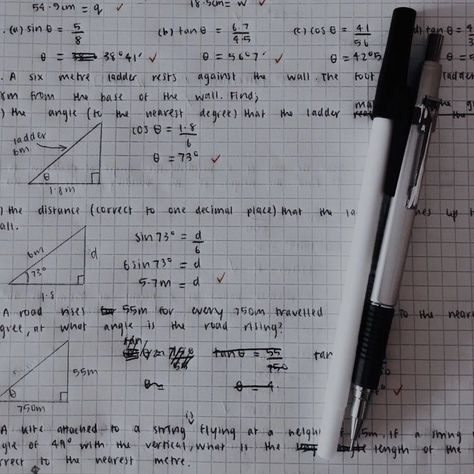 54.9cm = q ✓ 18.5cm = w ✓
(a) sin θ = 5/8 (b) tan θ = 6.7/4.5 (c) cos θ = 41/56 d) tan θ =
θ = 38°41' ✓ θ = 56°7' ✓ θ = 42°5
. A six metre ladder rests against the wall. The foot ladder
8m from the base of the wall. Find;
) the angle (to the nearest degree) that the ladder
ladder
6m
θ
1.8m
cos θ = 1.8/6
θ = 73° ✓
) the distance (correct to one decimal place) that the la hes up
all.
6m
d
73°
1.8
sin 73° = d/6
6 sin 73° = d
5.7m = d ✓
A road rises 55m for every 750m travelled to the neare
gree, at what angle is the road rising?
θ
55m
750m
tan
tan θ = 55/750
tan
θ =
θ = 4
A kite attached to a string is flying at a height 5m. If a string
gle of 49° with the vertical, what is the length of the
rrect to the nearest metre.